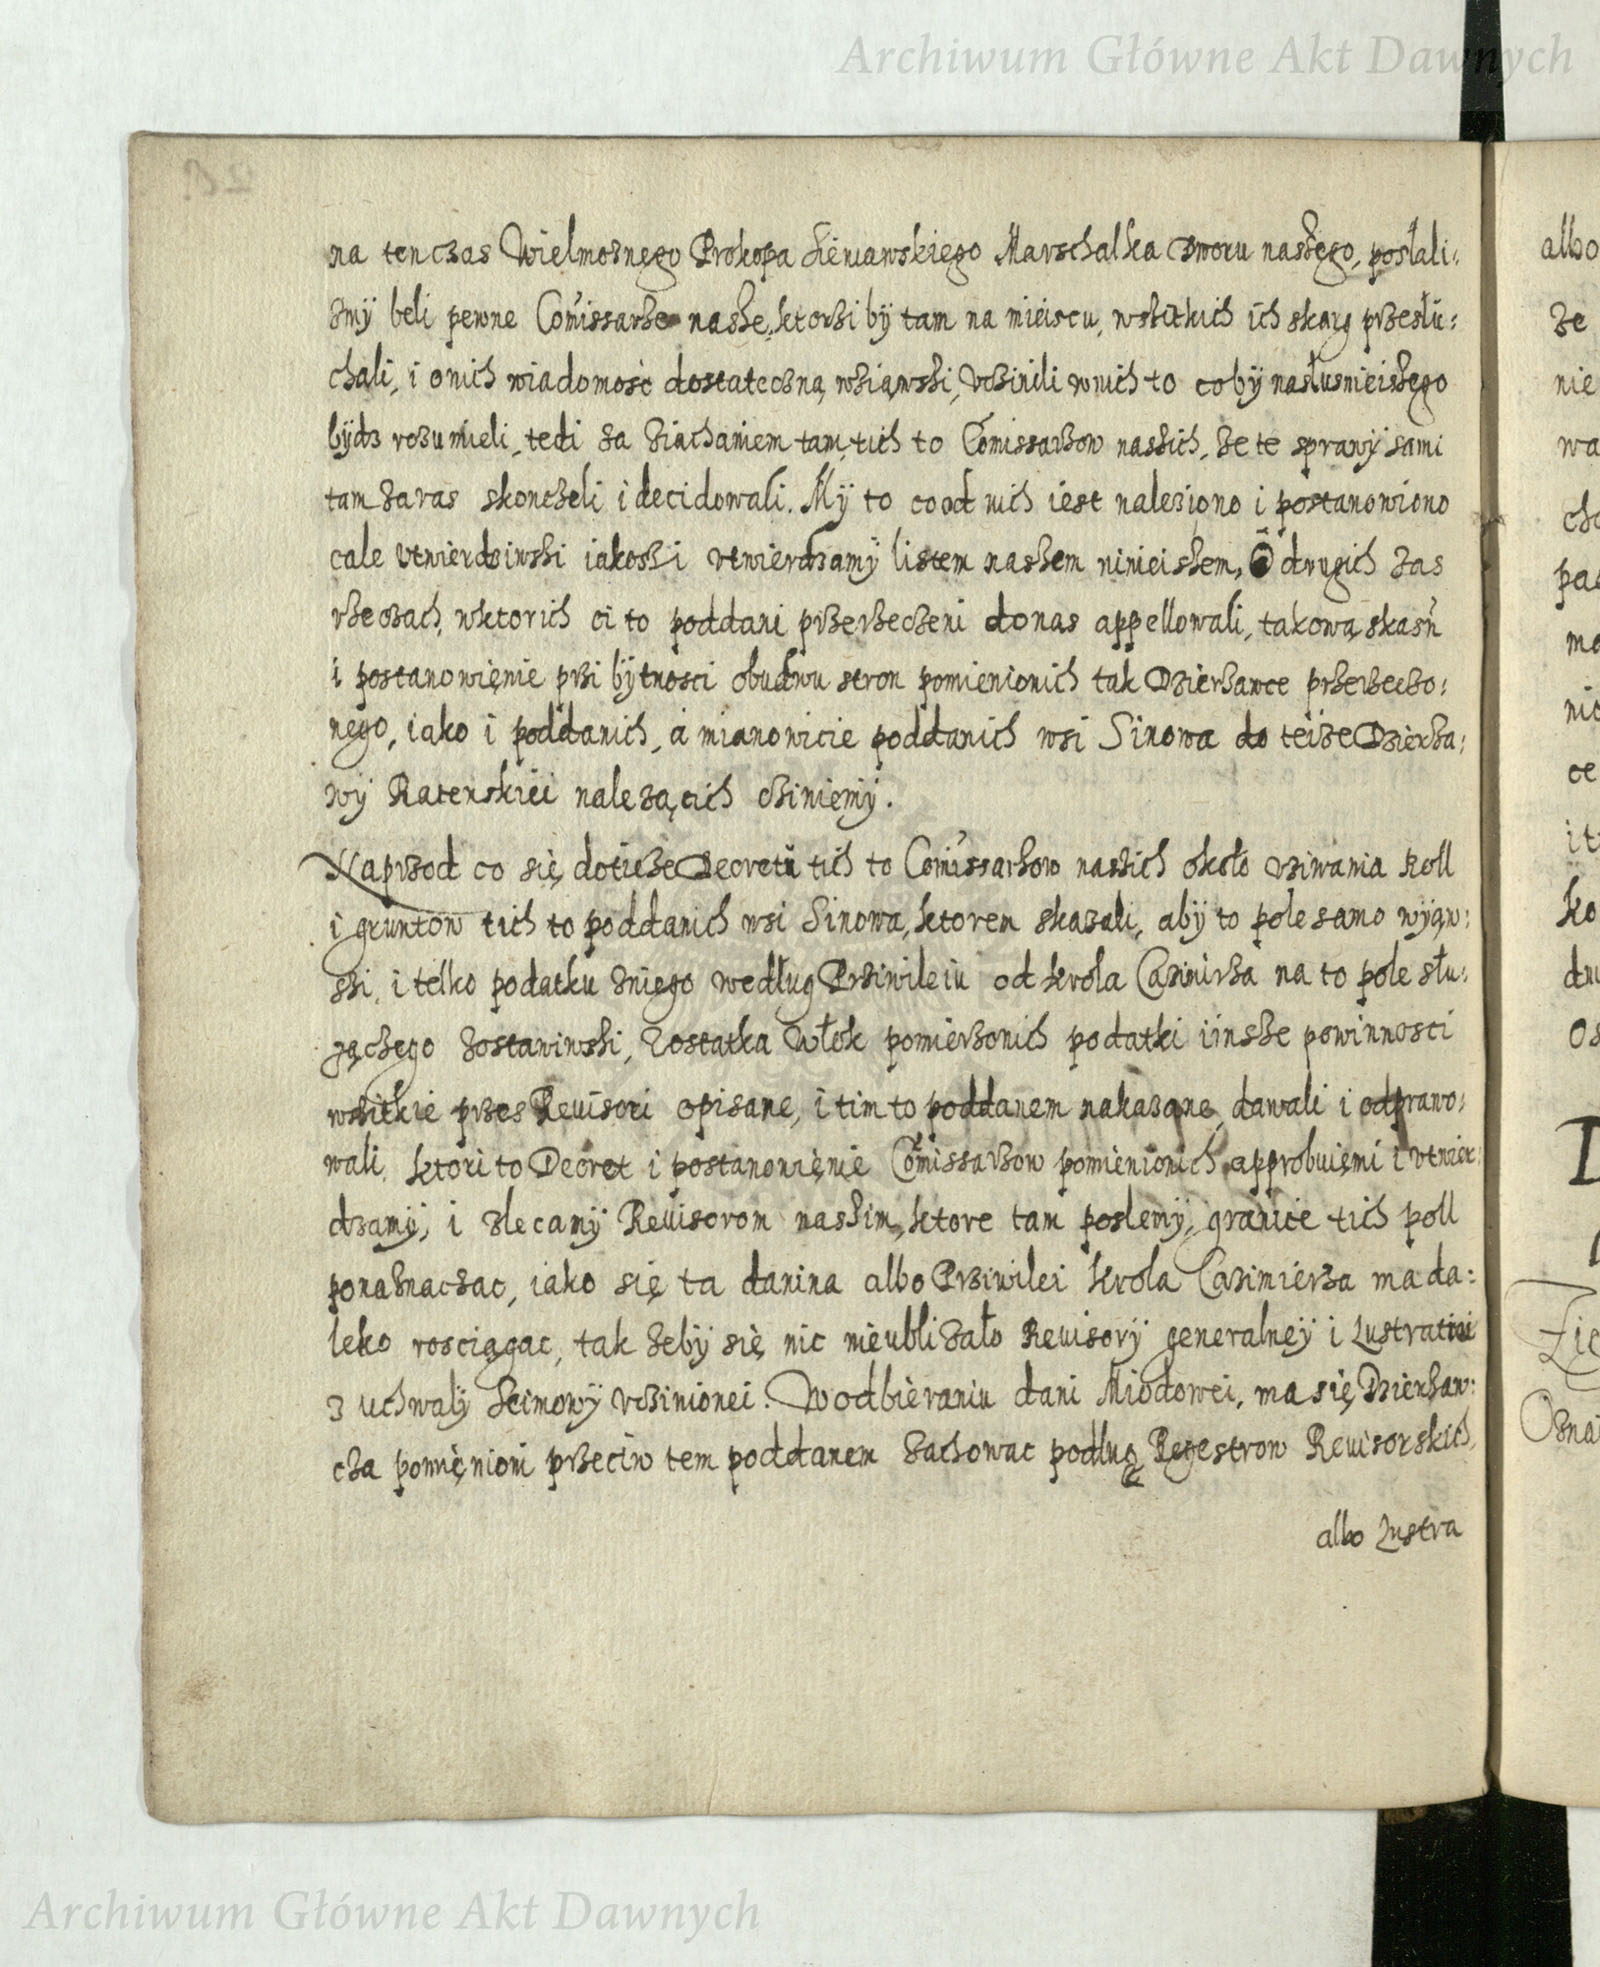 Archiwum Główne Akt Dawnych
na ten czas Wielmoznego Prokopa Sieniawskiego Marschalka Dworu naszego, posłali:
zmÿ beli pewne Com̃issarze nasze, ktorzi bÿ tam na mieiscu, wszitkich ich skarg przesłu:
chali, i o nich wiadomosc dostateczną wziąwszi, vczinili w nich to co bÿ nasłusnieiszego
bÿdz rozumieli, tedi za ziachaniem tam tich to Com̃issarzow naszich, ze te sprawÿ sami
tam zaras skonczeli i decidowali. Mÿ to co od nich iest nalezjono i postanowiono
cale utwierdziwszi iakoszi utwierdzamÿ listem naszem ninieiszem, O drugich zas
rzeczach, w ktorich ci to poddani przerzeczeni do nas appellowali, takową skazń
i postanowięnie przi bÿtnosci obudwu stron pomienionich tak Dzierzawce przerzeczo:
nęgo, iako i poddanich, a mianowicie poddanich wsi Sinowa do teize Dzierza:
wÿ Ratenskiei nalezącich cziniemÿ.
Naprzod co się doticze Decretu tich to Com̃issarzow naszich około vziwania Roll
i gruntow tich to poddanich wsi Sinowa, ktorem skazali, abÿ to pole samo wÿąw:
szi, i telko podatku zniego według Prziwileiu od krola Cazimirza na to pole słu:
żączego zostawiwszi, Zostatka Włok pomierzonich podatki i insze powinnosci
wszitkie przes Reuisori opisane, i tim to poddanem nakazane, dawali i odprawo:
wali, ktori to Decret i postanowięnie Com̃issarzow pomienionich approbuięmi i vtwier:
dzamÿ, i zlecamÿ Reuisorom naszim, ktore tam poslemÿ, granice tich poll
ponaznaczac, iako się ta danina albo Prziwilei krola Cazimierza ma da:
leko rosciągac, tak zebÿ się nic nieubliżało Reuisorÿ generalnęÿ i Lustratiei
z uchwalÿ Seimowÿ vczinionei. W odbieraniu dani Miodowei, ma się Dzierzaw:
cza pomięnioni przeciw tem poddanem zachowac podług Regestrow Reuisorskich,
albo Lustra
Archiwum Główne Akt Dawnych